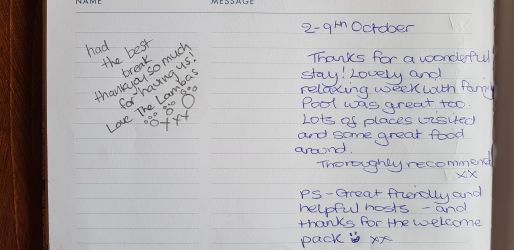 NAME
MESSAGE
had
the best
break
thankyou so much
for having us!
Love The Lambas
xxx
2-9th October
Thanks for a wonderful
stay! Lovely and
relaxing week with family
Pool was great too.
Lots of places visited
and some great food
around.
Thoroughly recommend
xx
PS - Great friendly and
helpful hosts - and
thanks for the welcome
pack xx